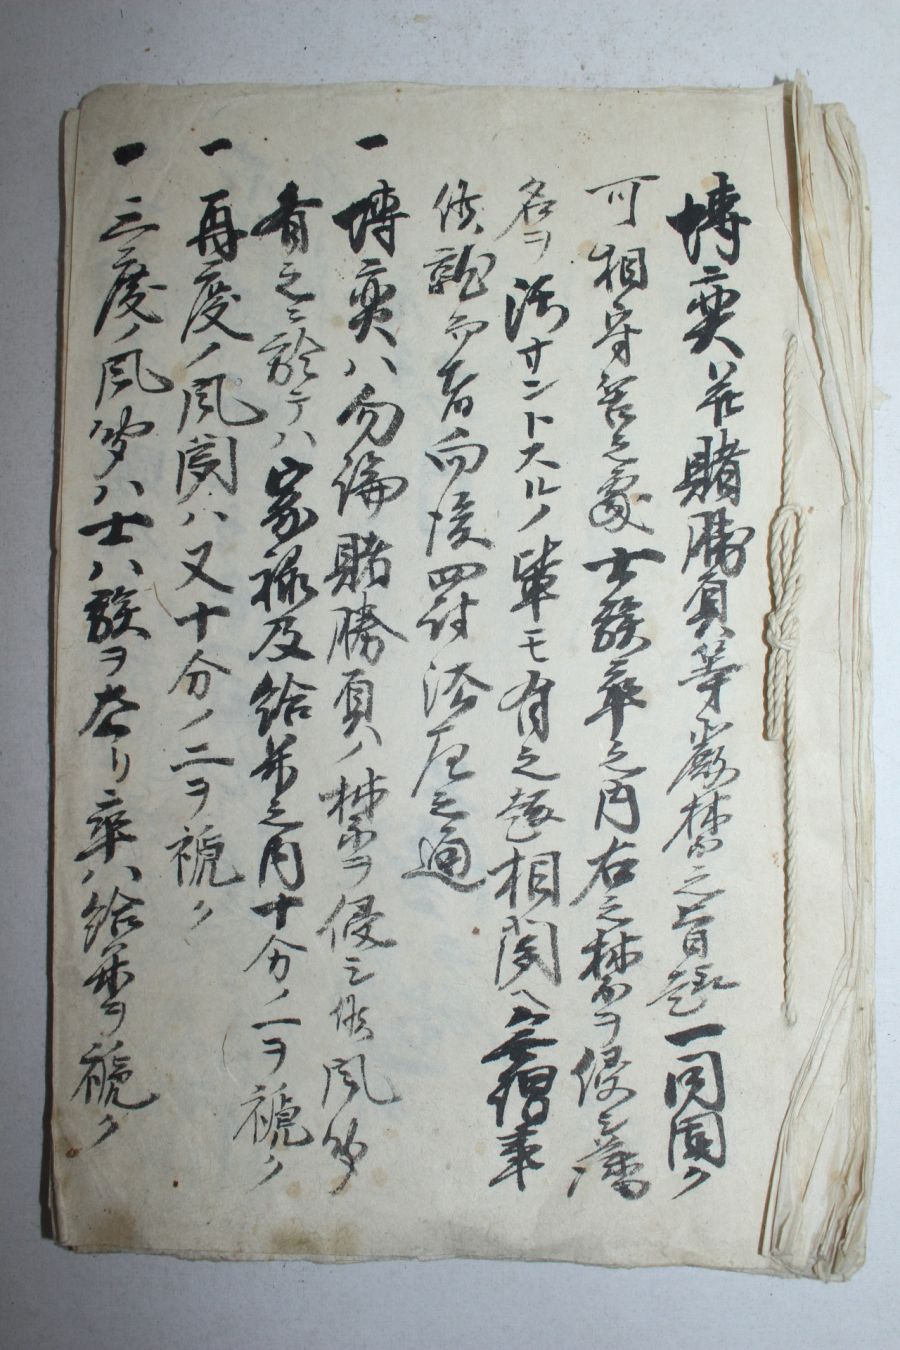 博奕ハ並賭勝負等厳禁之旨趣一同固ク
可相守筈之處士族卒之内右之禁ヲ侵シ藩
名ヲ汚サントスルノ輩モ有之趣相聞ヘ無謂事
候就而者向後罰法左之通
一 博奕ハ勿論賭勝負ノ禁ヲ侵シ候風聞
有之ニ於テハ家禄及給米之内十分ノ一ヲ褫ク
一 再度ノ風聞ハ又十分ノ二ヲ褫ク
一 三度ノ風聞ハ士ハ族ヲ去リ卒ハ給米ヲ褫ク